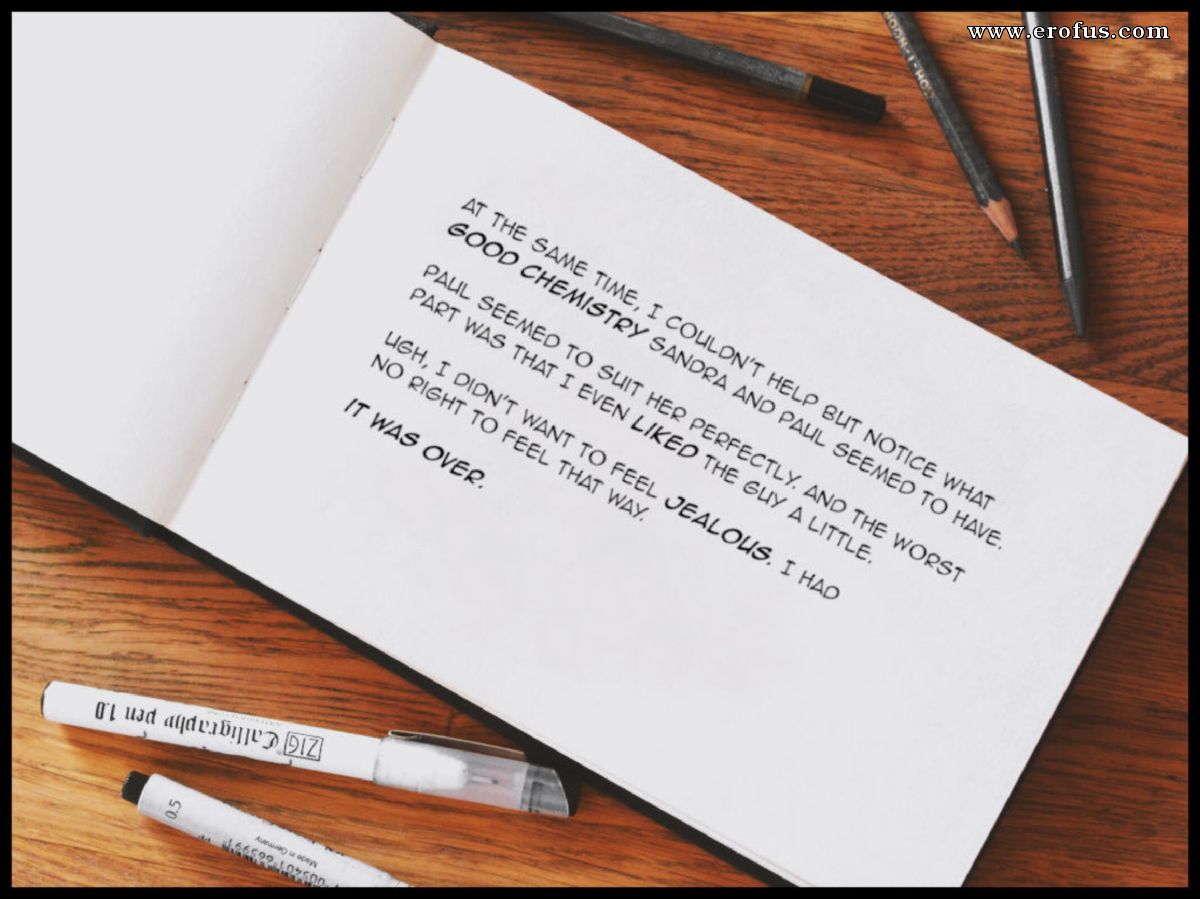 www.erofus.com
AT THE SAME TIME, I COULDN'T HELP BUT NOTICE WHAT
GOOD CHEMISTRY SANDRA AND PAUL SEEMED TO HAVE.
PAUL SEEMED TO SUIT HER PERFECTLY. AND THE WORST
PART WAS THAT I EVEN LIKED THE GUY A LITTLE.
UGH, I DIDN'T WANT TO FEEL JEALOUS. I HAD
NO RIGHT TO FEEL THAT WAY.
IT WAS OVER.
ZIG Calligraphy pen 1.0
0.5
Made in Germany